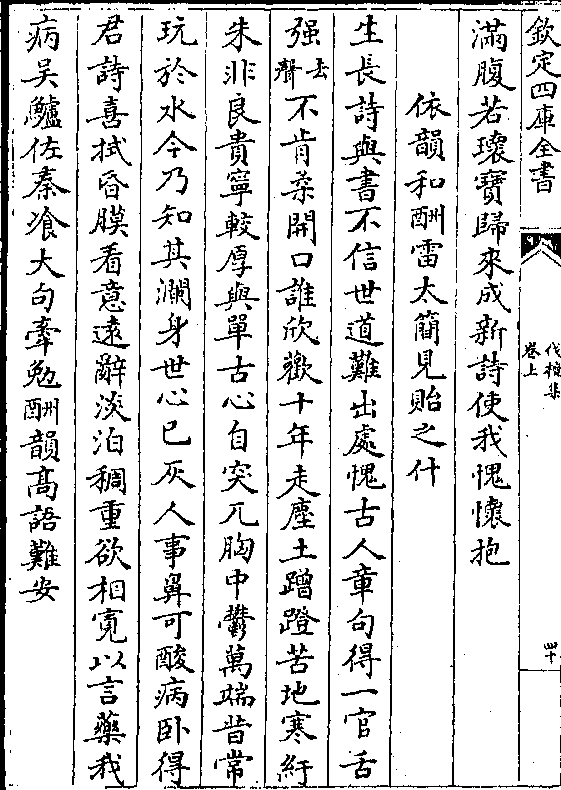 欽定四庫全書
伐檀集
卷上
四十
滿腹若瓌寶歸來成新詩使我愧懷抱
依韻和酬雷太簡見貽之什
生長詩與書不信世道難出處愧古人章句得一官舌
强去聲不肯柔開口誰欣歡十年走塵土蹭蹬苦地寒紆
朱非良貴寧較厚與單古心自突兀胸中鬱萬端昔常
玩於水今乃知其瀾身世心已灰人事鼻可酸病卧得
君詩喜拭昏膜看意遠辭淡泊稠重欲相寛以言藥我
病吴鱸佐秦飡大句牽勉酬韻髙語難安